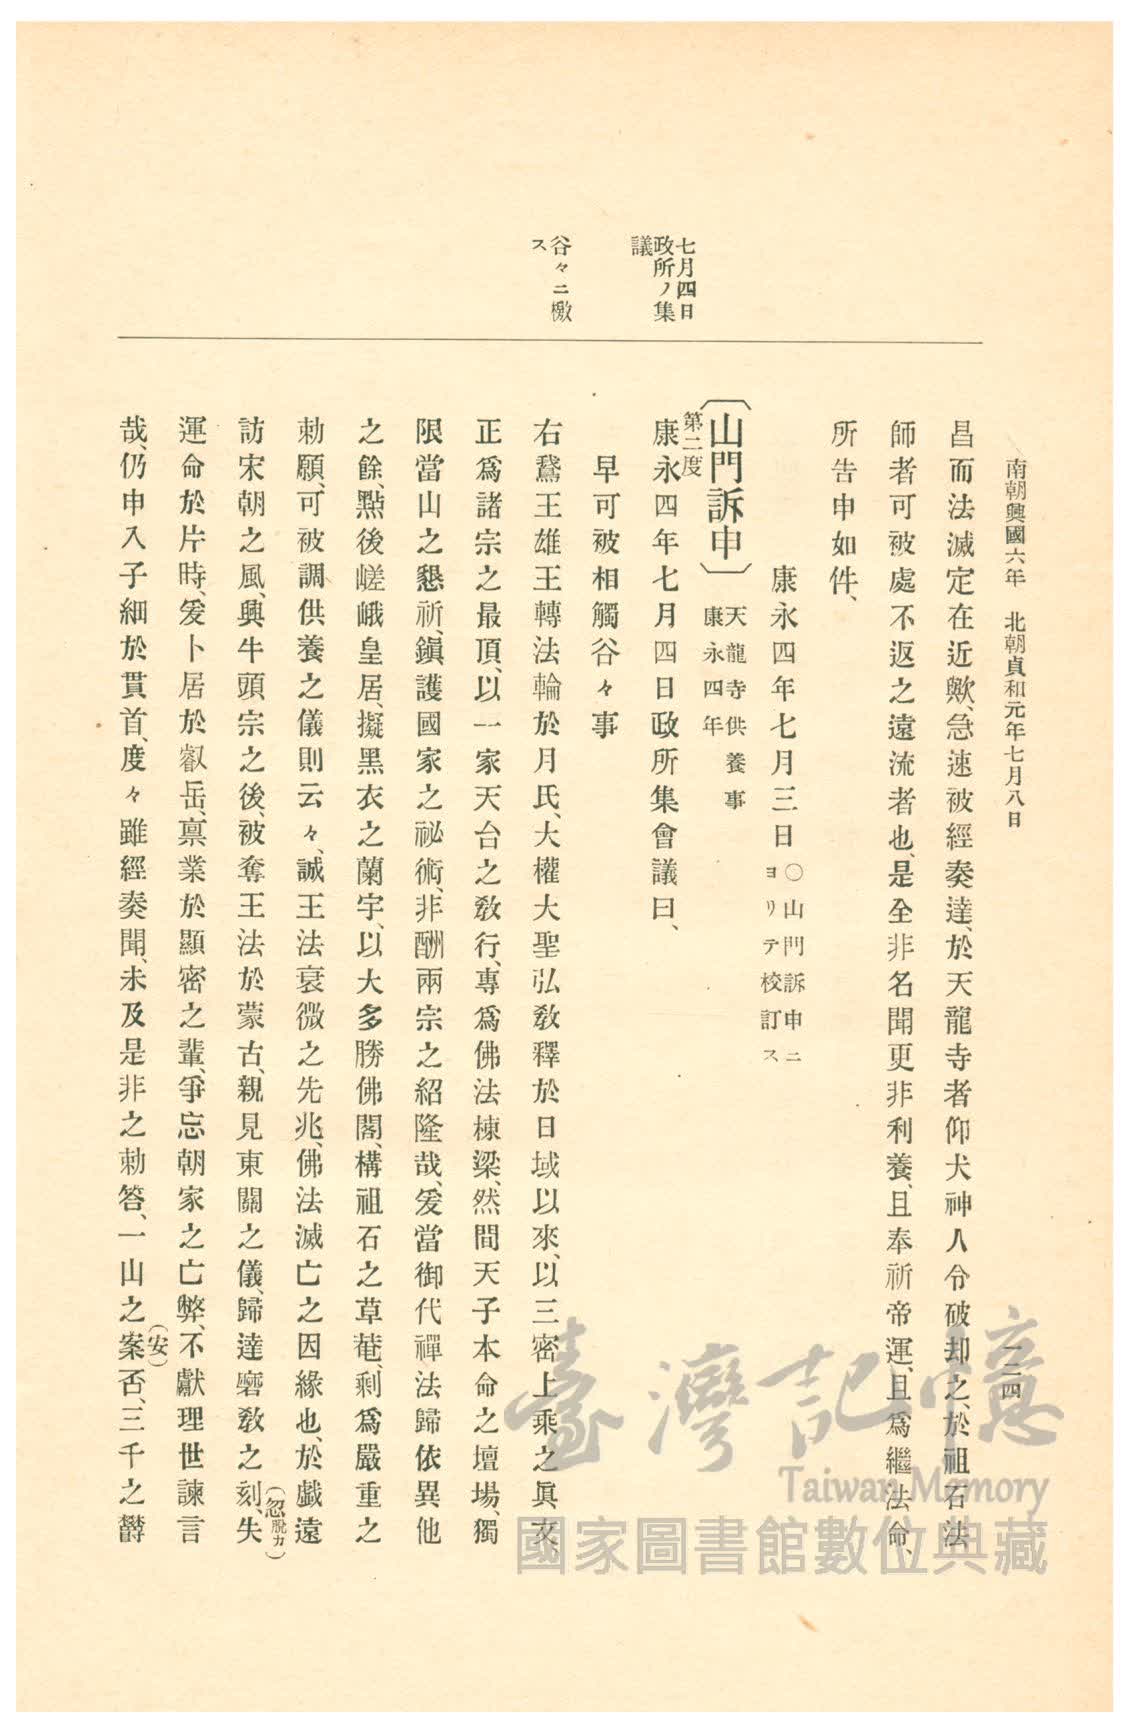 南朝興國六年 北朝貞和元年七月八日
一二四
昌而法滅定在近歟、急速被經奏達、於天龍寺者仰犬神人令破却之、於祖石法
師者可被處不返之遠流者也、是全非名聞更非利養、且奉祈帝運、且爲繼法命、
所告申如件、
康永四年七月三日 〇山門訴申ニ
ヨリテ校訂ス
〔山門訴申〕 天龍寺供養事
康永四年
第二度
康永四年七月四日政所集會議曰、
七月四日
政所ノ集
議
早可被相觸谷々事
谷々ニ檄
ス
右鵞王雄王轉法輪於月氏、大權大聖弘敎釋於日域以來、以三密上乘之眞文、
正爲諸宗之最頂、以一家天台之敎行、專爲佛法棟梁、然間天子本命之壇場、獨
限當山之懇祈、鎭護國家之祕術、非酬兩宗之紹隆哉、爰當御代禪法歸依異他
之餘、點後嵯峨皇居、擬黑衣之蘭宇、以大多勝佛閣、構祖石之草菴、剩爲嚴重之
勅願、可被調供養之儀則云々、誠王法衰微之先兆、佛法滅亡之因緣也、於戲遠
(忽脫カ)
訪宋朝之風、興牛頭宗之後、被奪王法於蒙古、親見東關之儀、歸達磨敎之刻、失
運命於片時、爰卜居於叡岳、禀業於顯密之輩、爭忘朝家之亡弊、不獻理世諫言
(安)
哉、仍申入子細於貫首、度々雖經奏聞、未及是非之勅答、一山之案否、三千之欝
臺灣記憶
Taiwan Memory
國家圖書館數位典藏